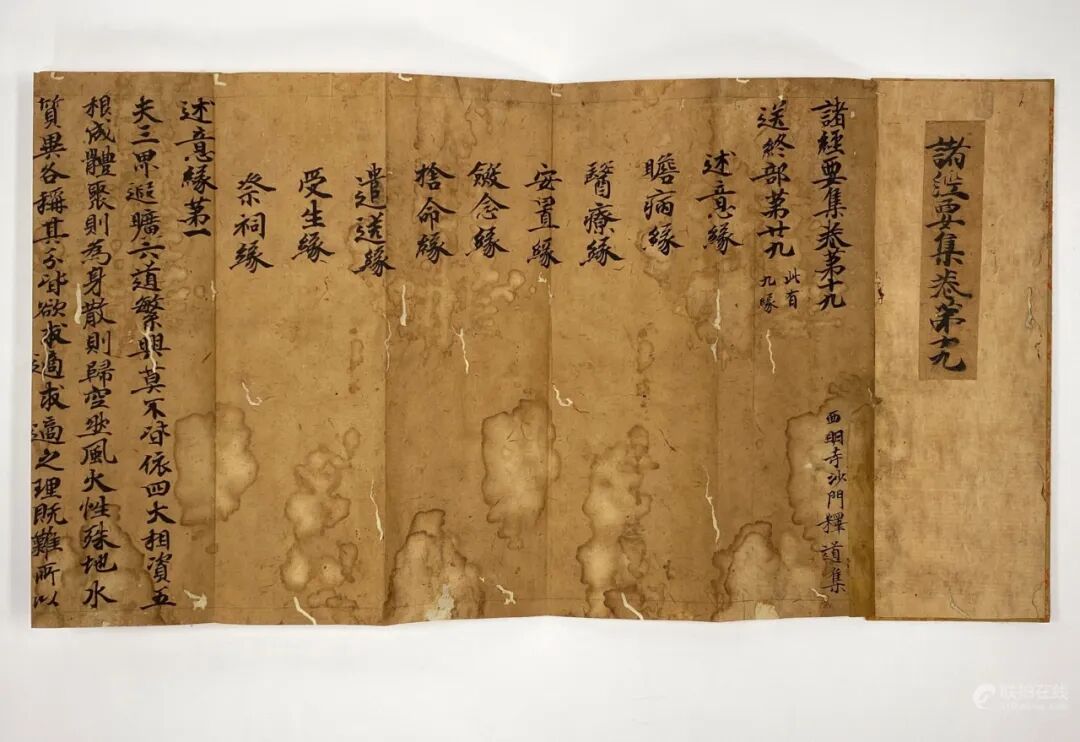 諸經要集卷第十九
諸經要集卷第十九
西明寺沙門釋道集
送終部第廿九 此有九緣
述意緣
瞻病緣
醫療緣
安置緣
斂念緣
捨命緣
遣送緣
受生緣
祭祠緣
述意緣第一
夫三界遐曠六道繁興莫不皆依四大相資五
根成體聚則為身散則歸空然風火性殊地水
質異各稱其分皆欲求適求適之理既難所以
联拍在线